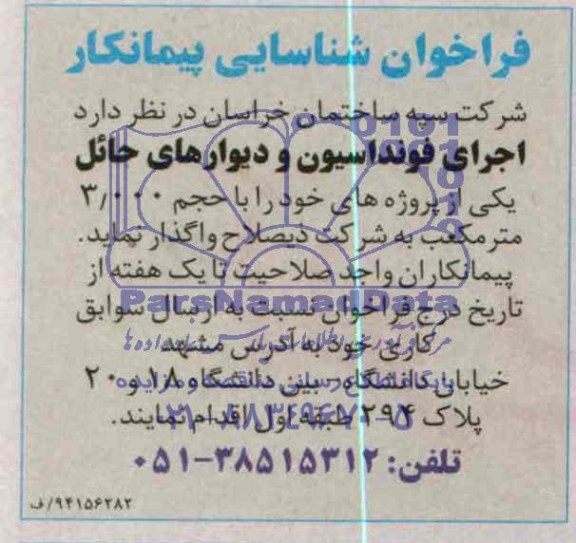 فراخوان شناسایی پیمانکار
شرکت سپه ساختمان خراسان در نظر دارد
اجرای فونداسیون و دیوارهای حائل
یکی از پروژه های خود را با حجم ۳/۰۰۰
مترمکعب به شرکت ذیصلاح واگذار نماید.
پیمانکاران واجد صلاحیت تا یک هفته از
تاریخ درج فراخوان نسبت به ارسال سوابق
کاری خود به آدرس مشهد
خیابان دانشگاه - بین دانشگاه ۱۸ و ۲۰
پلاک ۲۹۴ طبقه اول اقدام نمایند.
تلفن: ۳۸۵۱۵۳۱۲-۰۵۱
۹۴۱۵۶۲۸۲/ف
ParsNamadData